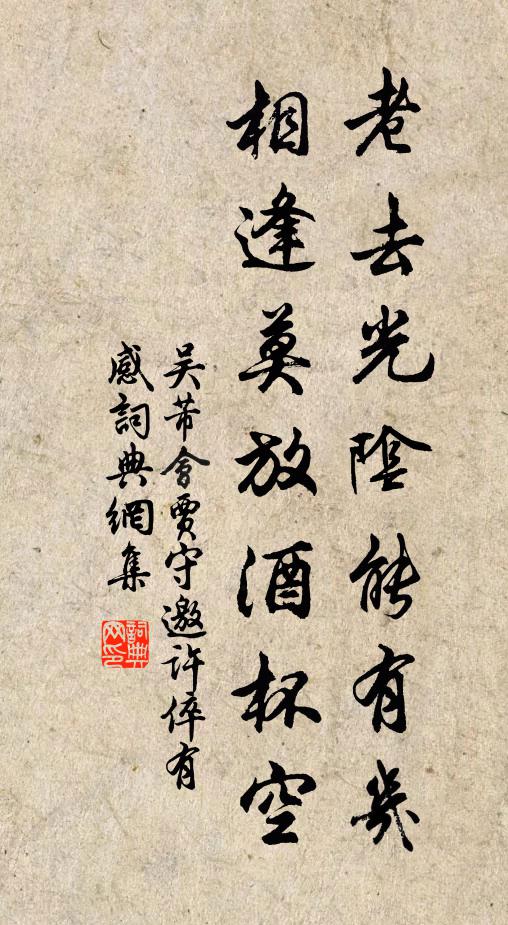 老去光陰能有幾
相逢莫放酒杯空
吴芾會賈守邀許倅有
感詞典網集
詞典
网印